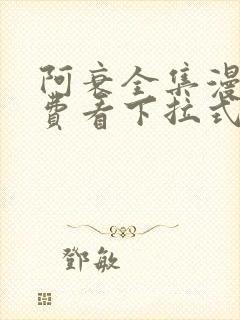 阿衰全集漫
费看下拉式
鄧敏